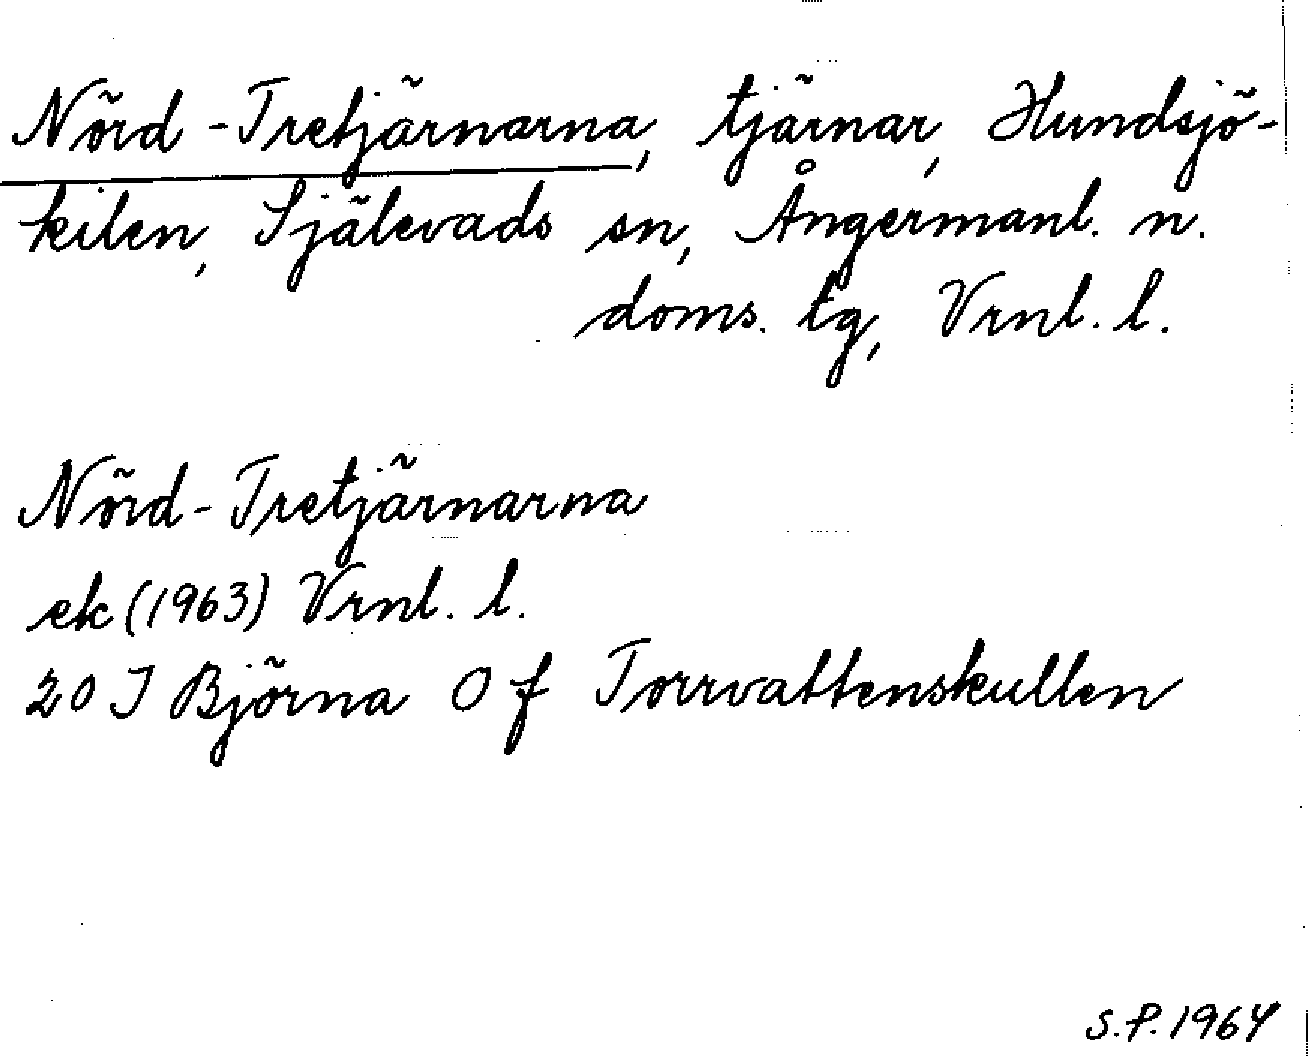 Nörd-Tretjärnarna, tjärnar, Hundsjö-
kilen, Själevads sn, Ångermanl. n.
doms. tg, Vrnl. l.
Nörd-Tretjärnarna
ek (1963) Vrnl. l.
20 I Björna 0 f Torrvattenskullen
S.P. 1964